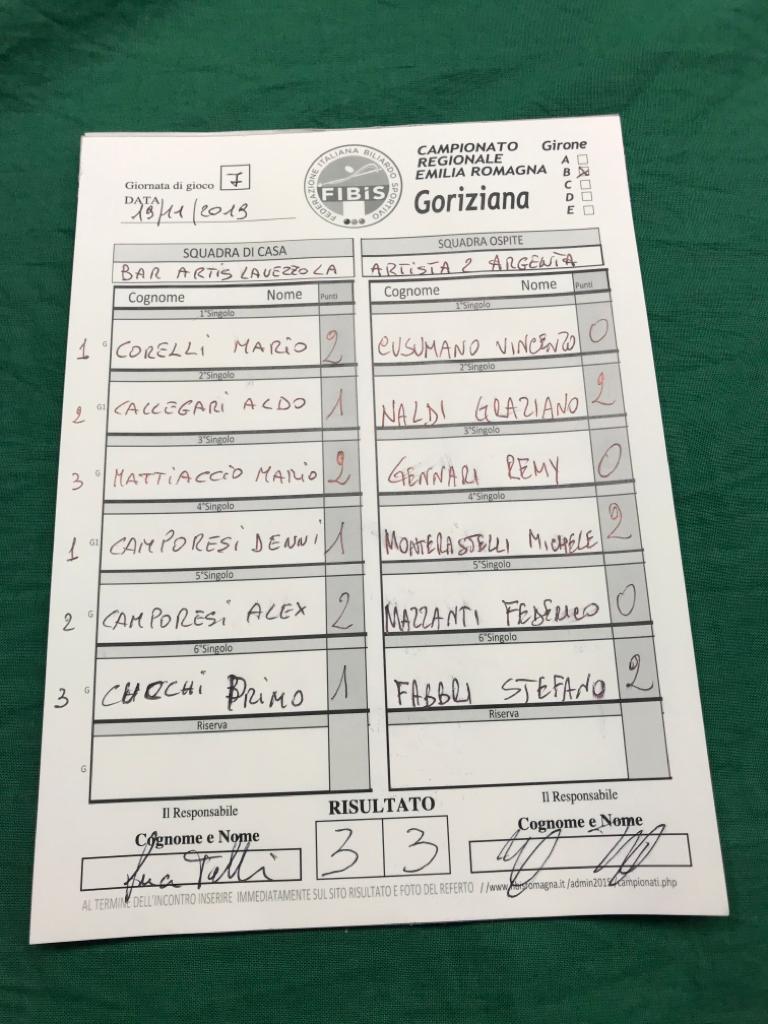 Giornata di gioco 7
DATA 19/11/2019
FEDERAZIONE ITALIANA BILIARDO SPORTIVO
FIBiS
CAMPIONATO
REGIONALE
EMILIA ROMAGNA
Goriziana
Girone
A
B X
C
D
E
SQUADRA DI CASA SQUADRA OSPITE
BAR ARTIS LAVEZZOLA ARTISTA 2 ARGENTA
Cognome Nome Punti Cognome Nome Punti
1°Singolo 1°Singolo
1 G CORELLI MARIO 2 CUSUMANO VINCENZO 0
2°Singolo 2°Singolo
2 G1 CALLEGARI ALDO 1 NALDI GRAZIANO 2
3°Singolo 3°Singolo
3 G MATTIACCIO MARIO 2 GENNARI REMY 0
4°Singolo 4°Singolo
1 G1 CAMPORESI DENNI 1 MONTERASTELLI MICHELE 2
5°Singolo 5°Singolo
2 G CAMPORESI ALEX 2 MAZZANTI FEDERICO 0
6°Singolo 6°Singolo
3 G CHECCHI PRIMO 1 FABBRI STEFANO 2
Riserva Riserva
G
Il Responsabile RISULTATO Il Responsabile
Cognome e Nome 3 3 Cognome e Nome
AL TERMINE DELL'INCONTRO INSERIRE IMMEDIATAMENTE SUL SITO RISULTATO E FOTO DEL REFERTO